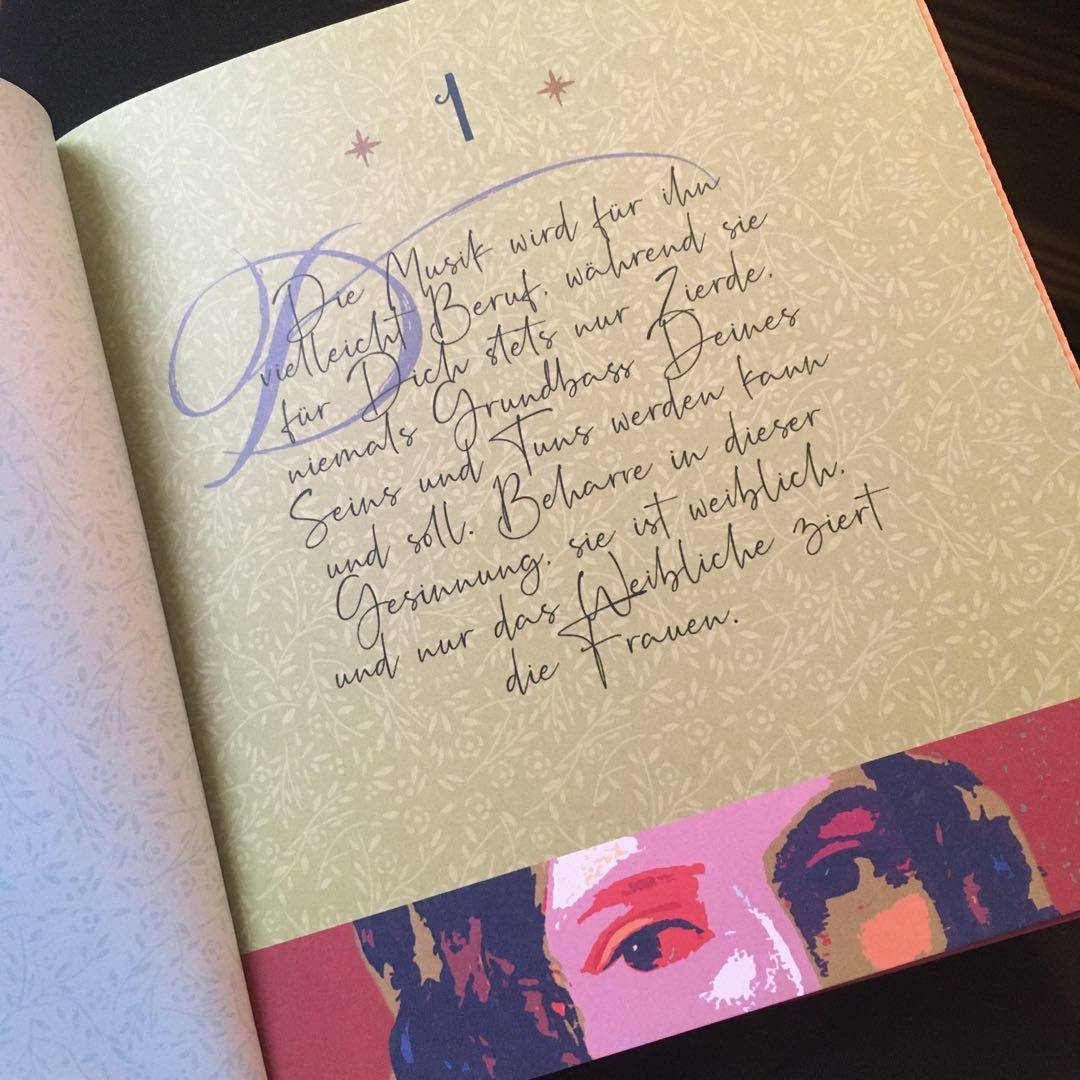 1
Die Musik wird für ihn
vielleicht Beruf, während sie
für Dich stets nur Zierde,
niemals Grundbass Deines
Seins und Tuns werden kann
und soll. Beharre in dieser
Gesinnung, sie ist weiblich,
und nur das Weibliche ziert
die Frauen.